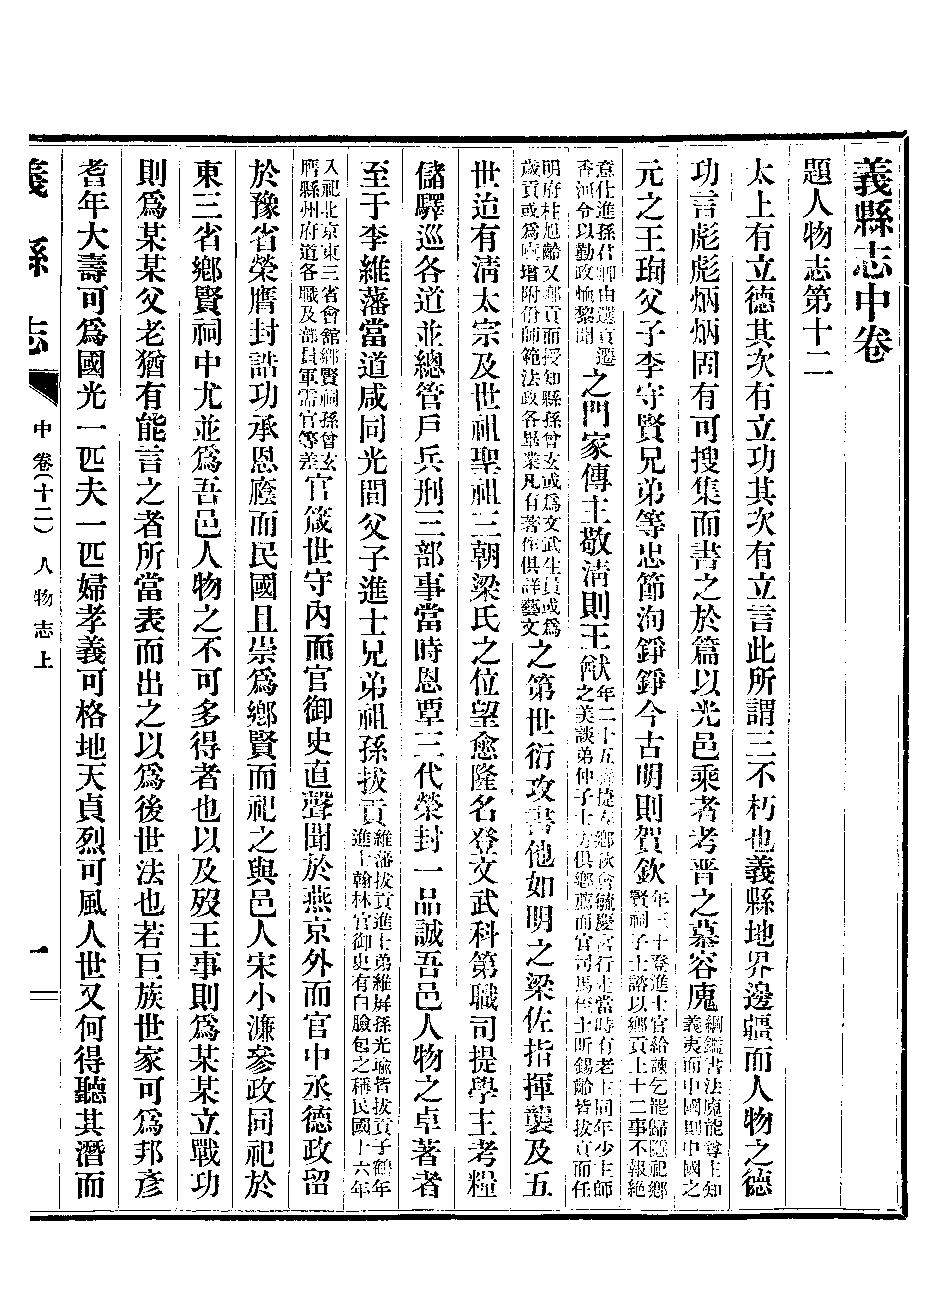 義縣志中卷
題人物志第十二
太上有立德其次有立功其次有立言此所謂三不朽也義縣地界邊疆而人物之德
功言彪彪炳炳固有可搜集而書之於篇以光邑乘者考晋之慕容廆
綱鑑書法廆能尊主知
義夷而中國則中國之
元之王珣父子李守賢兄弟等忠節洵錚錚今古明則賀欽
年三十登進士官給諫乞罷歸隱祀鄉
賢祠子士諮以鄉貢上十二事不報絕
意仕進孫君卿由選貢遷
香河令以勤政恤黎聞
之門家傳主敬淸則王猷
年二十五捷鄉會毓慶宮行走當時有老主同年少主師
之美談弟仲子士俱鄉薦而官司馬侄士昕錫齡皆拔貢而任
明府杜旭齡又鄉貢而授知縣孫曾玄或爲文武生員或爲
歲貢或爲廩增附師範法政各畢業凡有著作俱詳藝文
之第世衍攻書他如明之梁佐指揮襲及五
世迨有淸太宗及世祖聖祖三朝梁氏之位望愈隆名登文武科第職司提學主考糧
儲驛巡各道並總管戶兵刑三部事當時恩覃三代榮封一品誠吾邑人物之卓著者
至于李維藩當道咸同光間父子進士兄弟祖孫拔貢
維藩拔貢進士弟維屏孫光瑜皆拔貢子鶴年
進士翰林官御史有白臉包之稱民國十六年
入祀北京東三省會館鄉賢祠孫曾玄
膺縣州府道各職及部員軍需官等差
官箴世守內而官御史直聲聞於燕京外而官中丞德政留
於豫省榮膺封誥功承恩廕而民國且崇爲鄉賢而祀之與邑人宋小濂參政同祀於
東三省鄉賢祠中尤並爲吾邑人物之不可多得者也以及歿王事則爲某某立戰功
則爲某某父老猶有能言之者所當表而出之以爲後世法也若巨族世家可爲邦彥
耆年大壽可爲國光一匹夫一匹婦孝義可格地天貞烈可風人世又何得聽其潛而
義縣志 中卷(十二)人物志上 一